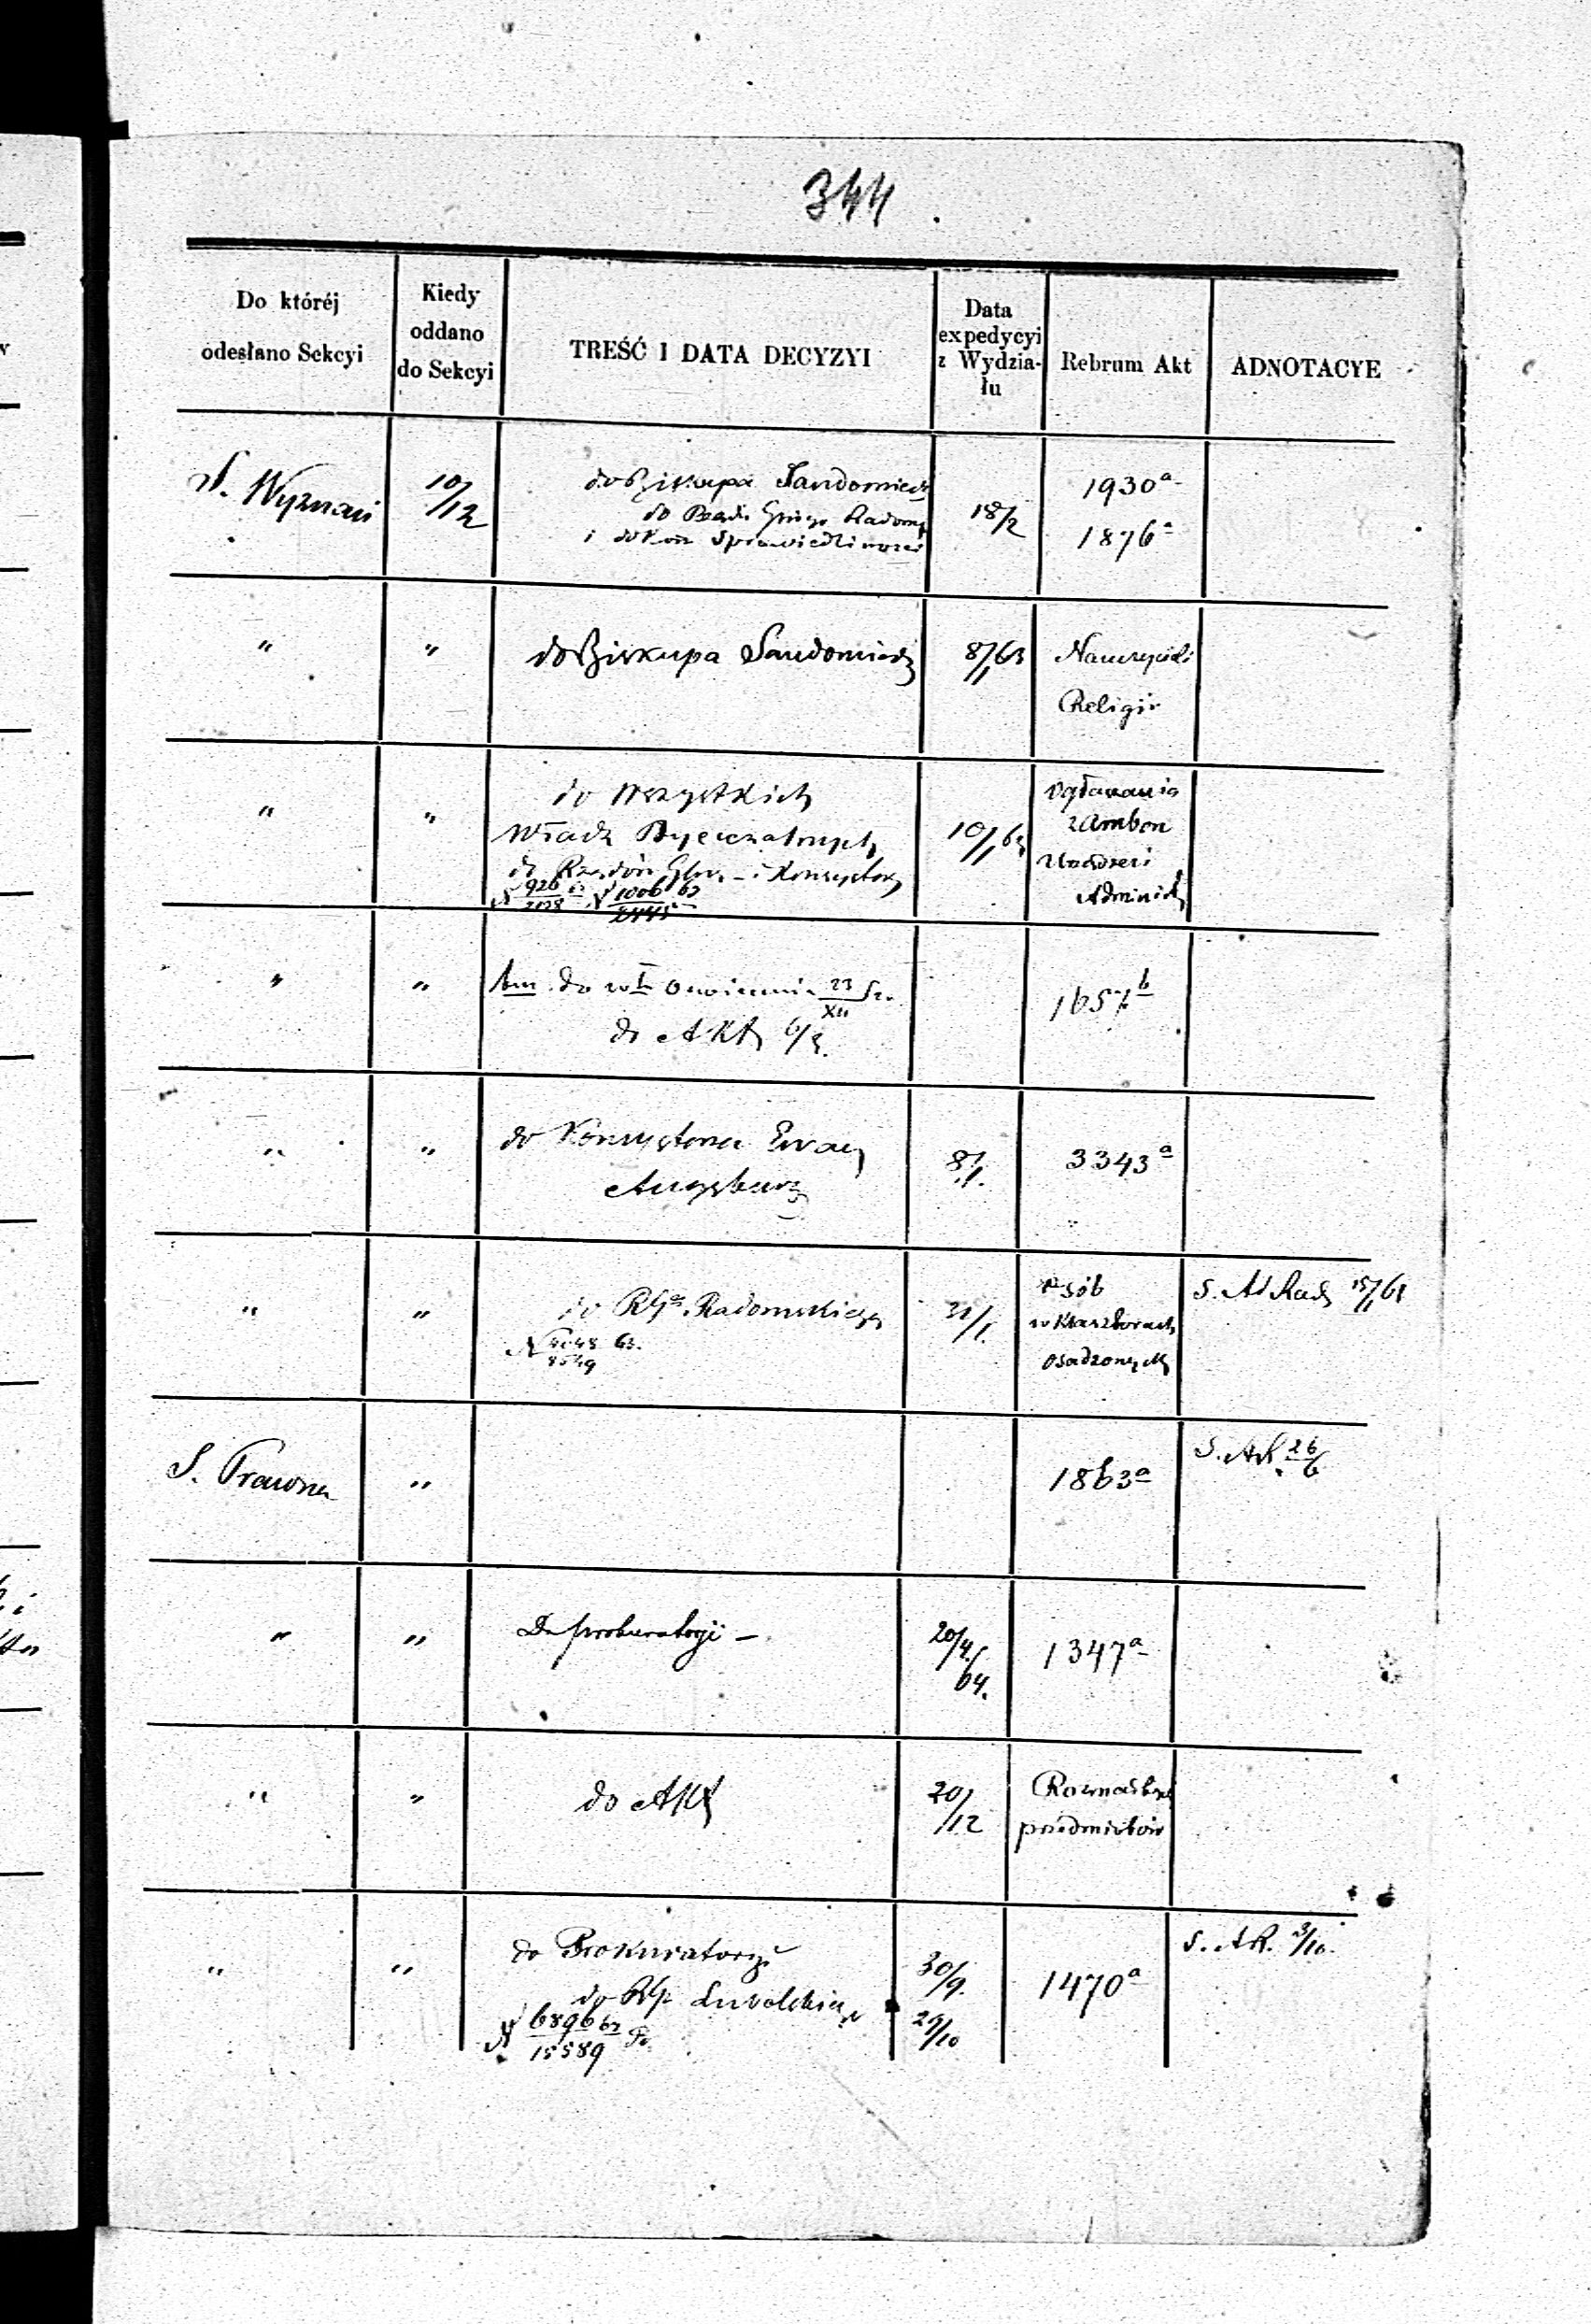 344
Do któréj
odesłano Sekcyi
Kiedy
oddano
do Sekcyi
TREŚĆ I DATA DECYZYI
Data
expedycyi
z Wydzia-
łu
Rebrum Akt
ADNOTACYE
S. Wyznań
10/12
do Biskupa Sandomiersk
do Rządu Radoms
i do Kom Sprawiedliwości
18/2
1930a
1876a
" "
do Biskupa Sandomiersk
8/1 63
Nauczyciele
Religii
" "
do Wszystkich
Władz Dyecezalnych
do Rządów Gber. - i Konsystorz
N 926 N 1006 63
2445
10/1 63
Ogłaszania
z Ambon
Administ
" "
do Akt
23
XII
1657b
" "
do Konsystorza Ewan
Augsburg
8/1.
3343a
" "
do RGo Radomskiego
N 63.
31/1.
osób
w Klasztorach
osadzonych
S. Ad Rad
" "
S. Prawna
"
1863a
S. AR 26/6
" "
Do prokuratoryi -
20/4/64.
1347a
" "
do Akt
20/12
Rozmaitych
przedmiotów
" "
do Prokuratoryi
do RG Lubelskiego
N 6896 63
15589
30/9.
29/10
1470a
S. AR. 3/10.